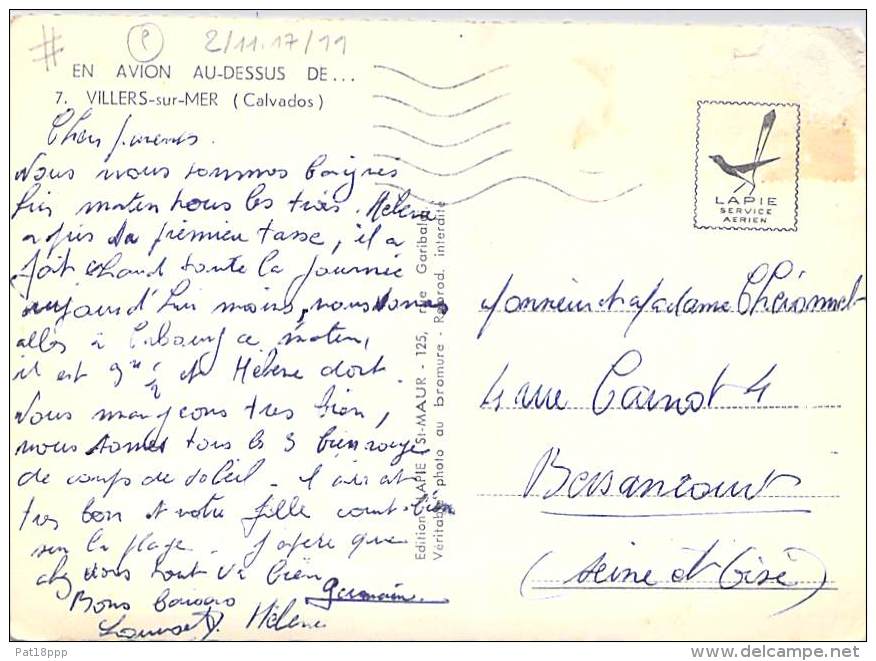 # P 2/11.17/19
EN AVION AU-DESSUS DE...
7. VILLERS-sur-MER (Calvados)
Chers parents.
Nous nous sommes baignés
hier matin tous les trois. Hélène
a pris sa première tasse, il a
fait chaud toute la journée
aujourd'hui moins, nous sommes
allés à Cabourg ce matin,
il est 9h 1/2 et Hélène dort.
Nous mangeons très bien,
nous sommes tous les 3 bien rouge
de coups de soleil. l'air est
très bon et votre fille court bien
sur la plage. J'espère que
chez vous tout va bien
Bons baisers germain
Hélène
Edition LAPIE ST-MAUR - 125, rue Garibaldi
Véritable photo au bromure - Reprod. interdite
LAPIE
SERVICE
AERIEN
Monsieur et Madame
4 rue Carnot 4
Bessancourt
(Seine et Oise)
Pat18ppp
www.delcampe.net